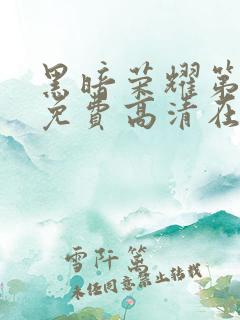 黑暗荣耀第
免费高清在
雪阡篱
未经同意禁止转载